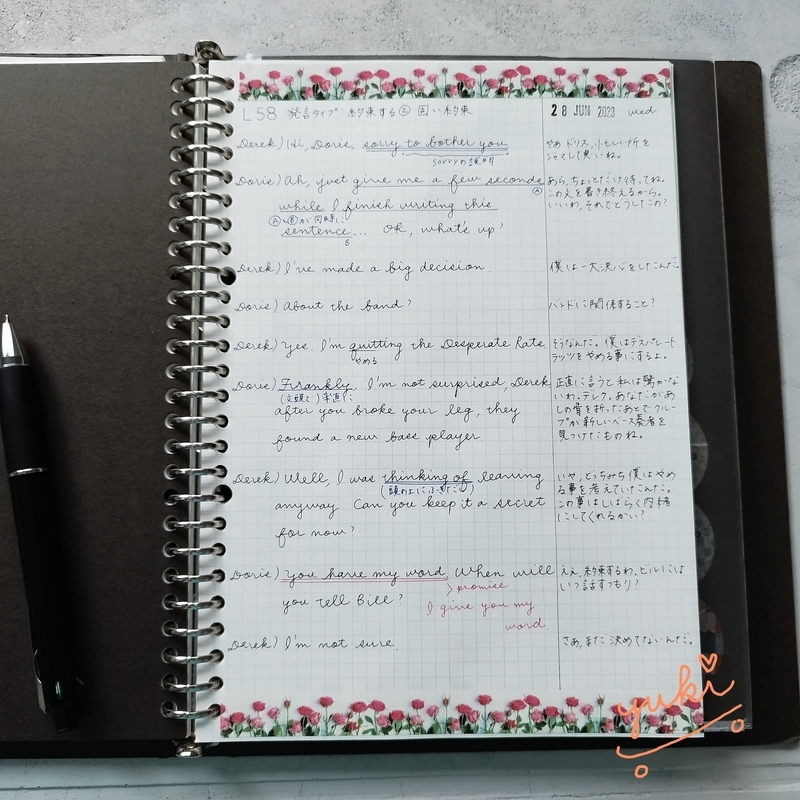 L58 発言タイプ 約束する② 固い約束
28 JUN 2023 wed
Derek) Hi, Doris, sorry to bother you
sorryの説明
やあ ドリス, 忙しい所を
ジャマして悪いね。
Doris) Ah, just give me a few seconds
Ⓐ
while I finish writing this
ⒶとⒷが同時に
sentence... OK, what's up?
B
あら, ちょっとだけ待ってね。
この文を書き終えるから。
いいわ, それでどうしたの?
Derek) I've made a big decision.
僕は一大決心をしたんだ。
Doris) About the band?
バンドに関係すること?
Derek) Yes. I'm quitting the Desperate Rats
やめる
そうなんだ。僕はデスパレート
ラッツをやめる事にするよ。
Doris) Frankly, I'm not surprised, Derek
(文頭で) 率直に
after you broke your leg, they
found a new bass player.
正直に言うと 私は驚かな
いわ。デレク, あなたがあ
しの骨を折ったあとでグルー
プが新しいベース奏者を
見つけたものね。
Derek) Well, I was thinking of leaving
anyway. Can you keep it a secret
for now?
いや, どっちみち僕はやめ
る事を考えていたんだ。
この事はしばらく内緒
にしてくれるかい?
Doris) You have my word. When will
> promise
you tell Bill?
I give you my
word.
ええ, 約束するわ。ビルには
いつ話すつもり?
Derek) I'm not sure.
さあ, まだ決めてないんだ。
yuki